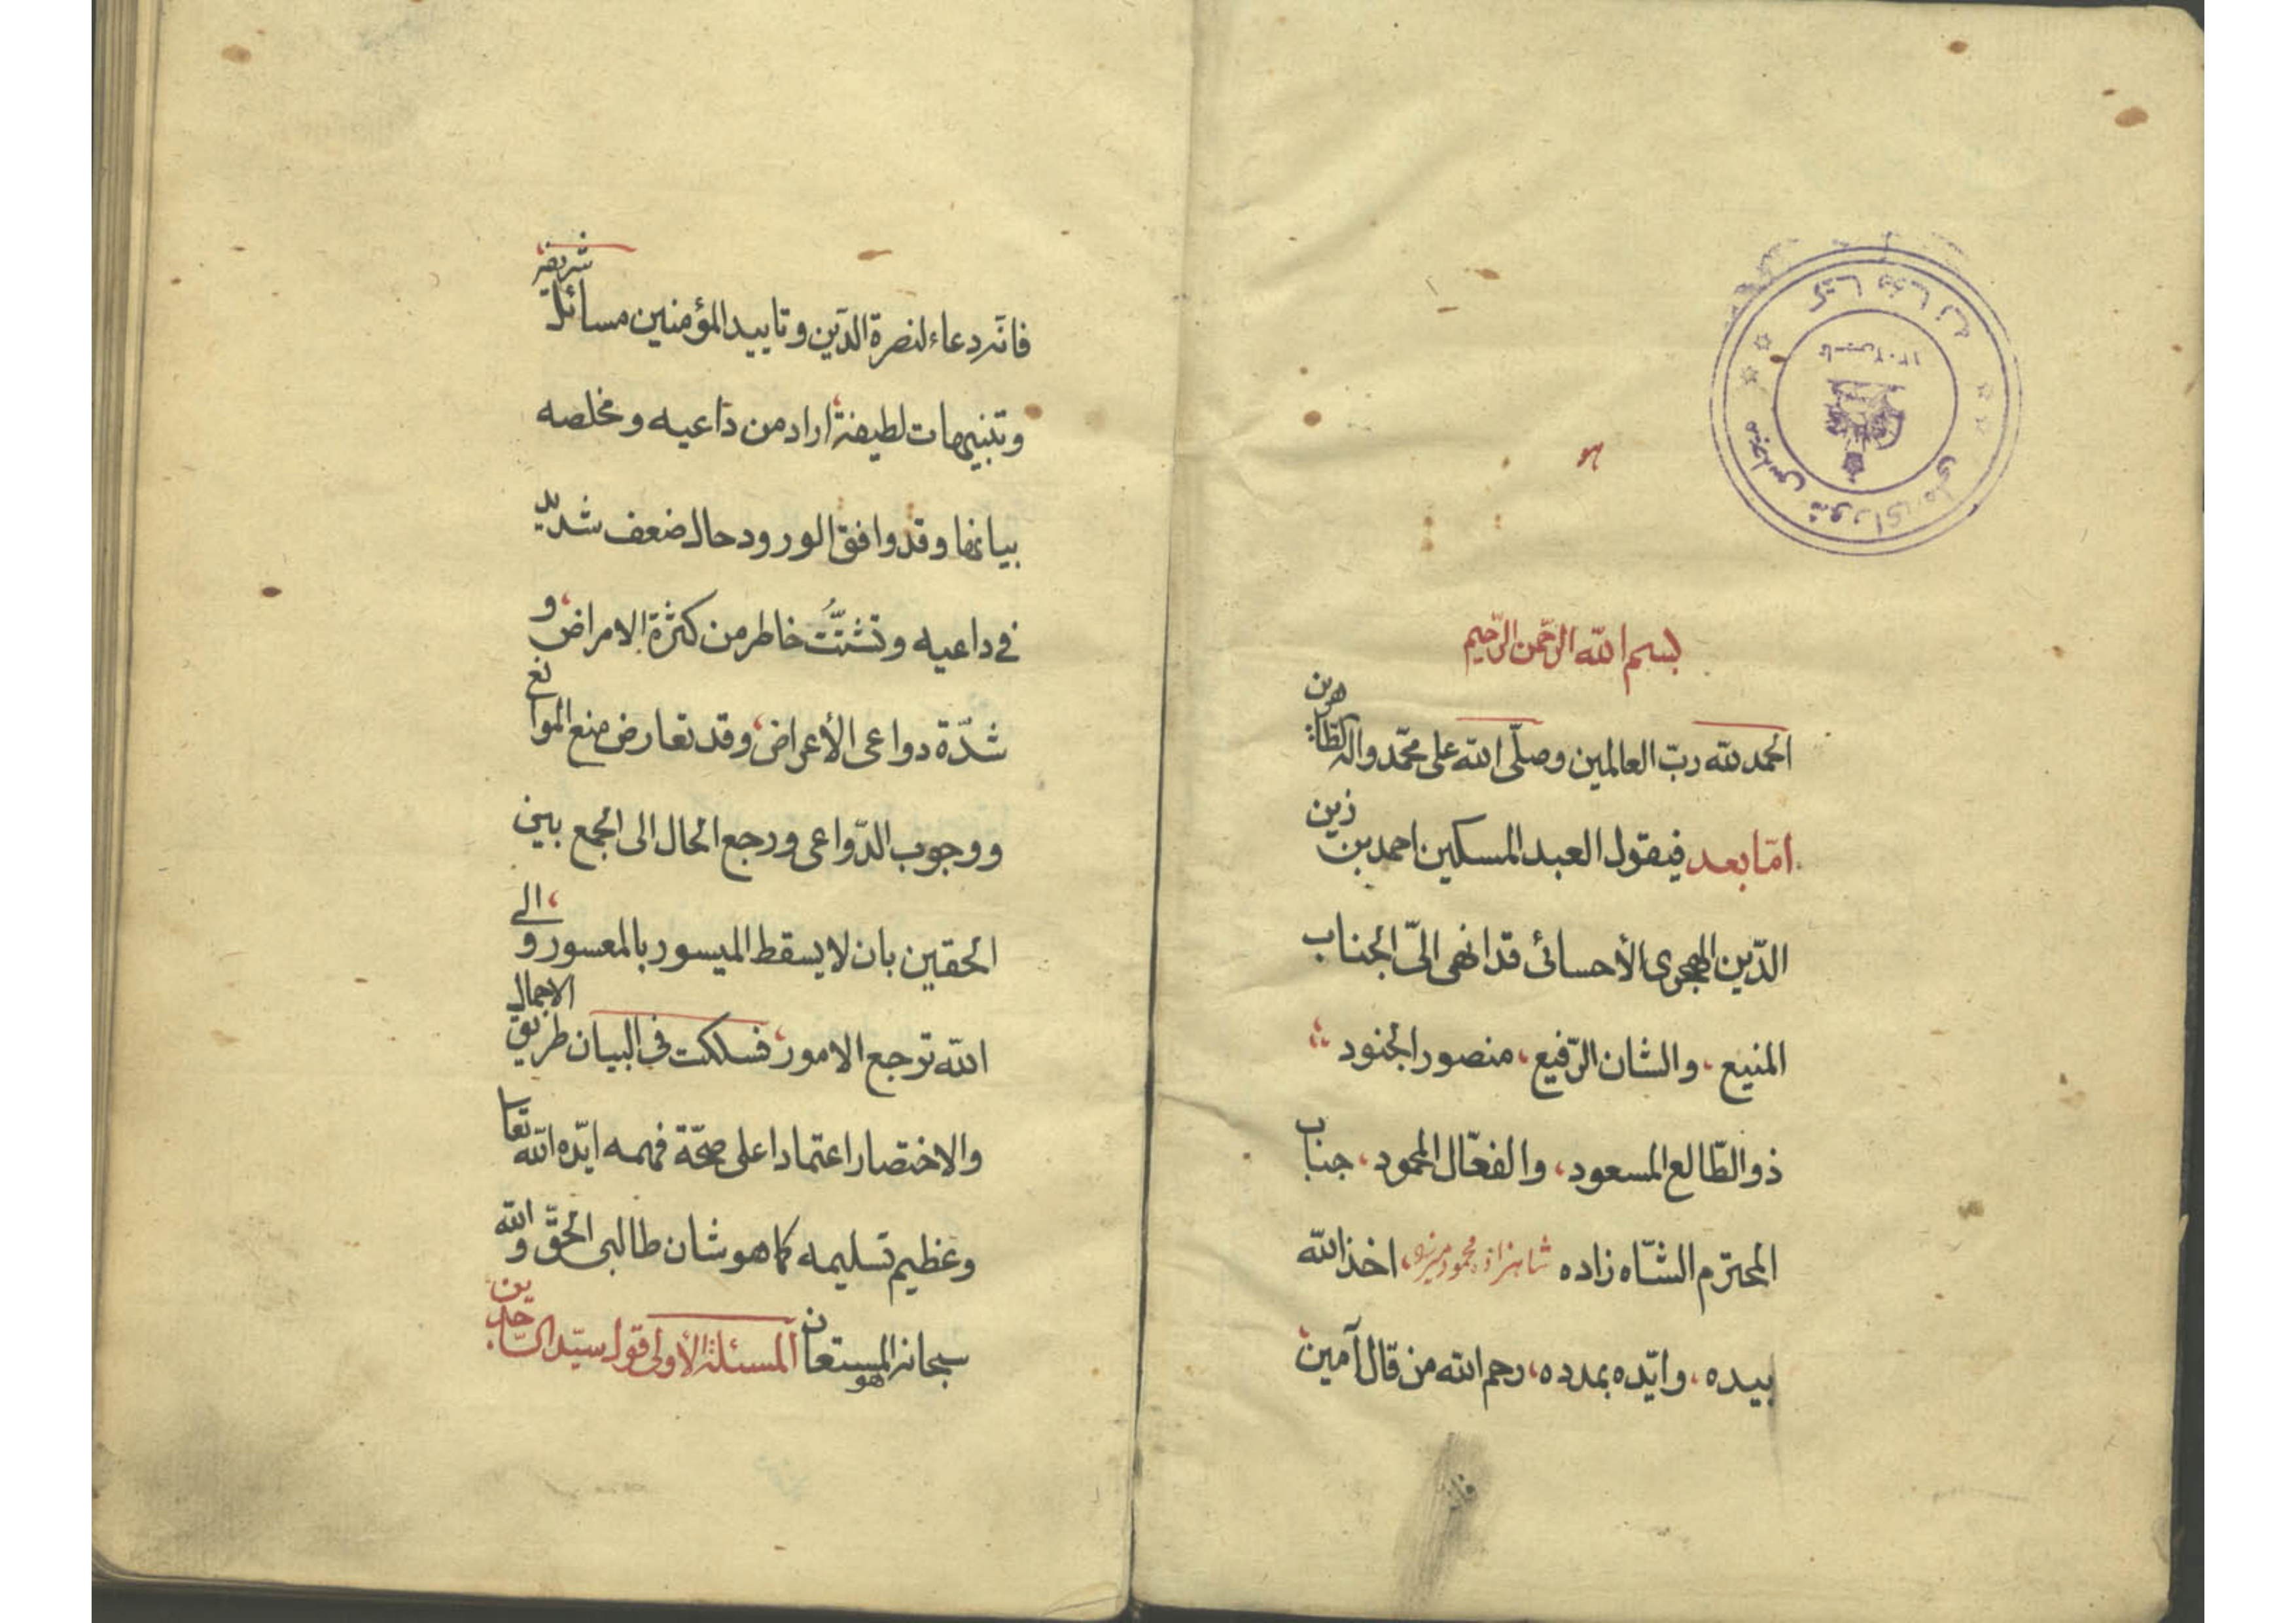 كتابخانه
مجلس شورای ملی
تاسیس ۱۳۰۲
بسم الله الرّحمن الرّحيم
الحمد لله ربّ العالمين وصلّى الله على محمّد واله الطّاهرين
امّا بعد فيقول العبد المسكين احمد بن زين
الدّين الهجرى الأحسائى قد انهى الىّ الجناب
المنيع، والشان الرّفيع، منصور الجنود
ذو الطّالع المسعود، والفعّال المحمود، جناب
المحترم الشّاه زاده شاهزاده محمود ميرزا، اخذ الله
بيده، وايّده بمدده، رحم الله من قال آمين
فانه
فانّه دعاء لنصرة الدّين وتاييد المؤمنين مسائل شريفة
وتنبيهات لطيفة اراد من داعيه ومخلصه
بيانها وقد وافق الورود حال ضعف شديد
فى داعيه وتشتّت خاطر من كثرة الامراض، و
شدّة دواعى الأعراض، وقد تعارض منع الموانع
ووجوب الدّواعى ورجع الحال الى الجمع بين
الحقين بان لا يسقط الميسور بالمعسور و الى
الله ترجع الامور، فسلكت فى البيان طريق الاجمال
والاختصار اعتمادا على صحّة فهمه ايّده الله تعا
وعظيم تسليمه كما هو شان طالبى الحقّ والله
سبحانه هو المستعان المسئلة الأولى قول سيّد السّاجدين